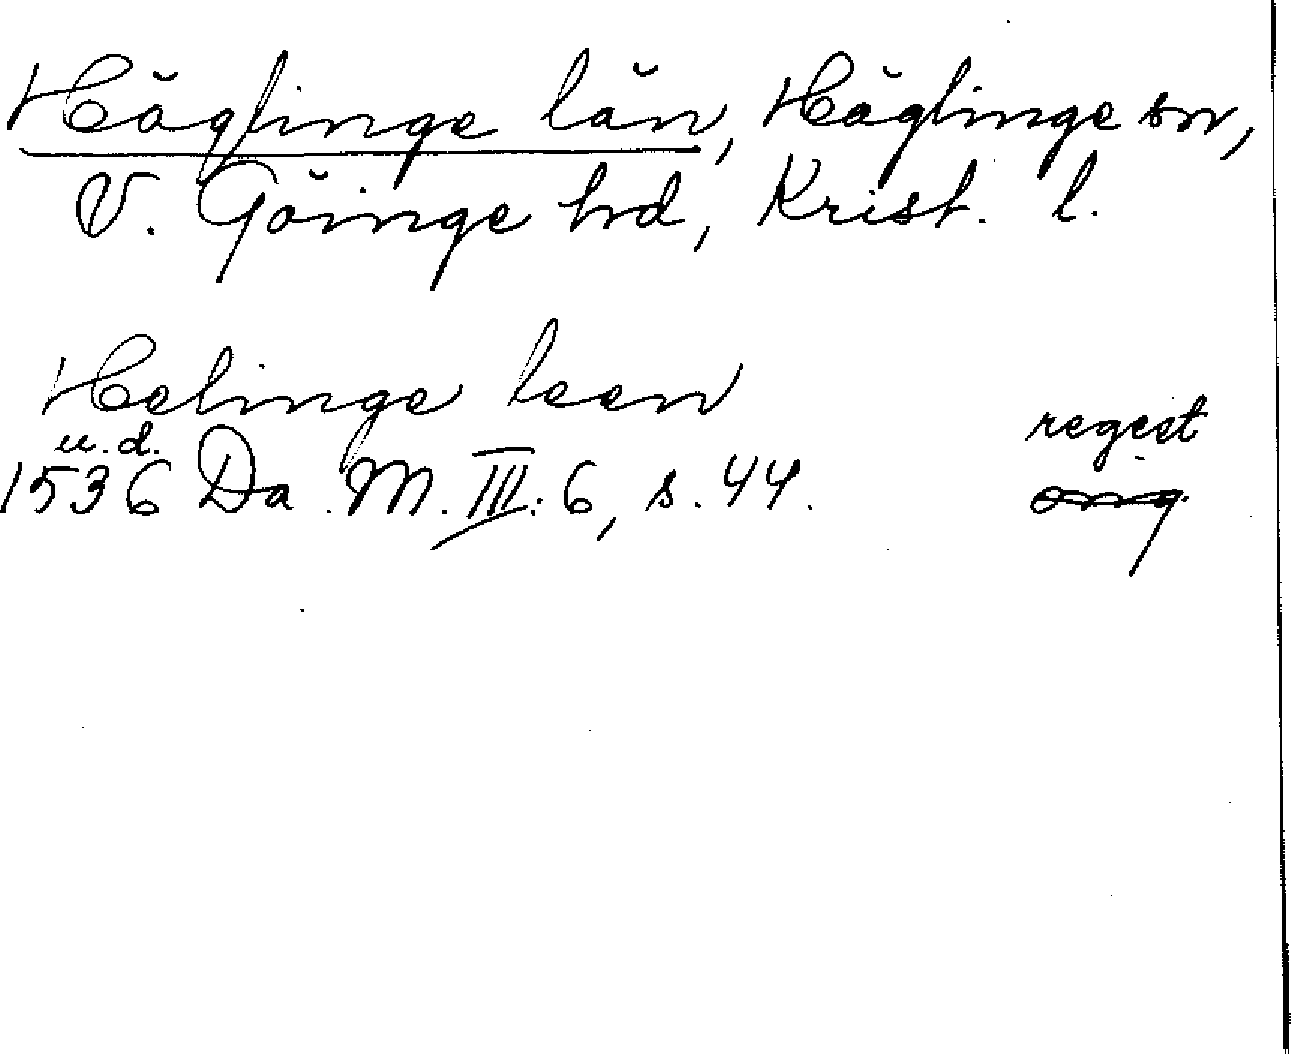 Häglinge län, Häglinge sn,
V. Göinge hd, Krist. l.
Helinge leen
u.d. regest
1536 Da. M. III: 6, s. 44. orig.